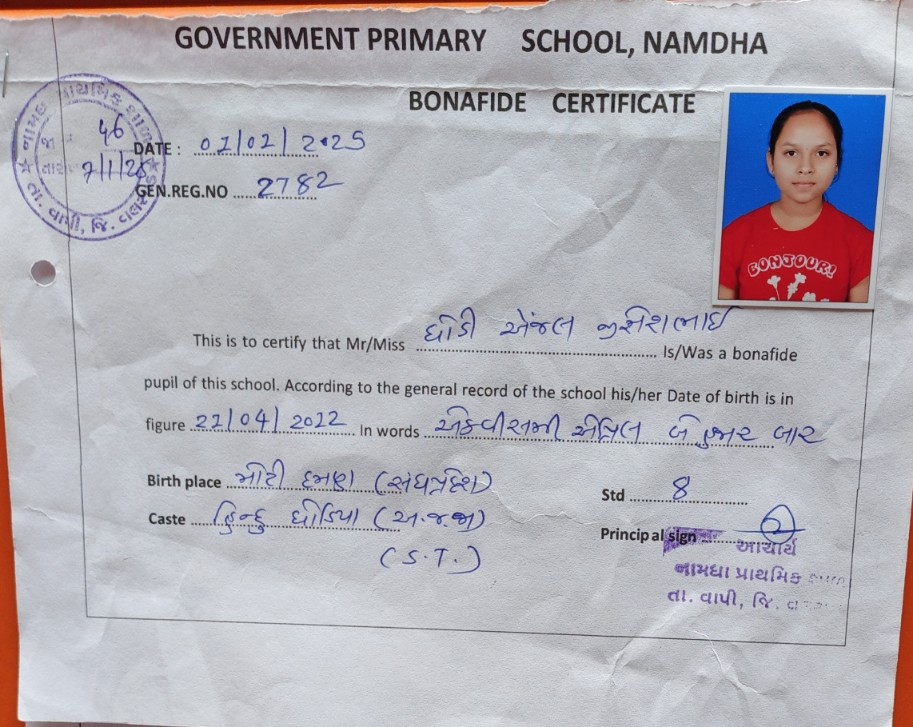 GOVERNMENT PRIMARY SCHOOL, NAMDHA
BONAFIDE CERTIFICATE
નામધા પ્રાથમિક શાળા
46
તા. વાપી, જિ. વલસાડ
DATE : 01/02/2025
GEN.REG.NO 2782
This is to certify that Mr/Miss ધોડી એંજલ Is/Was a bonafide
pupil of this school. According to the general record of the school his/her Date of birth is in
figure 21/04/2012 In words એકવીસમી એપ્રિલ બે હજાર બાર
Birth place મોટી દમણ (સંઘપ્રદેશ)
Std 8
Caste હિન્દુ ધોડિયા (અ.જ.જા)
(S.T.)
Principal sign
આચાર્ય
નામધા પ્રાથમિક
તા. વાપી, જિ.
BONJOUR!